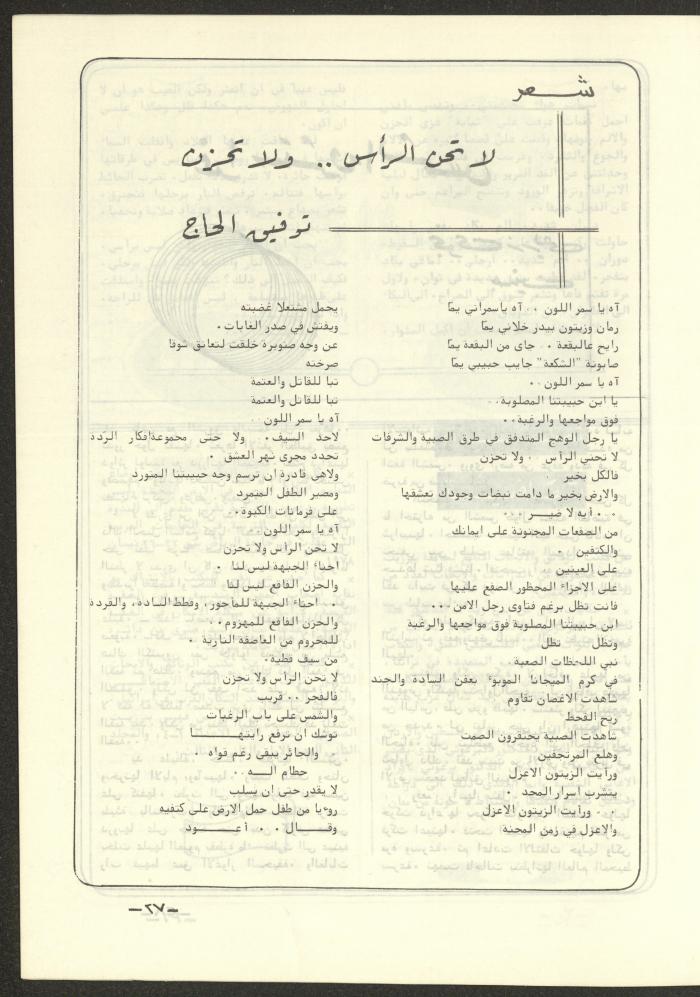 شعر
لا تحن الرأس .. ولا تحزن
توفيق الحاج
آه يا سمر اللون .. آه ياسمراني يمّا
رمان وزيتون بيدر خلاني يمّا
رايح عالبقعة . جاى من البقعة يمّا
صابونة "الشكعة" جايب حبيبي يمّا
آه يا سمر اللون ..
يا ابن حبيبتنا المصلوبة..
فوق مواجعها والرغبة..
يا رجل الوهج المتدفق في طرق الصبية والشرفات
لا تحني الرأس . ولا تحزن
فالكل بخير
والارض بخير ما دامت نبضات وجودك تعشقها
. . أيه لا ضير ...
من الصفعات المجنونة على ايمانك
والكتفين .
على العينين
على الاجزاء المحظور الصفع عليها
فانت تظل برغم فتاوى رجل الامن ...
ابن حبيبتنا المصلوبة فوق مواجعها والرغبة
وتظل تظل
نبي اللحظات الصعبة
في كرم الميجانا الموبوء بعفن السادة والجند
شاهدت الاغصان تقاوم
ريح القحط
شاهدت الصبية يحتقرون الصمت
وهلع المرتجفين
ورأيت الزيتون الاعزل
يتشرب اسرار المجد .
. . ورأيت الزيتون الاعزل
والاعزل في زمن المحنة
يحمل مشتعلا غضبته
ويفتش في صدر الغابات .
عن وجه صنوبرة خلقت لتعانق شوقا
صرخته
تبا للقاتل والعتمة
تبا للقاتل والعتمة
آه يا سمر اللون
لاحد السيف. ولا حتى مجموعة افكار الردة
تحدد مجرى نهر العشق .
ولاهي قادرة ان ترسم وجه حبيبتنا المتورد
ومصير الطفل المتمرد
على فرمانات الكبوة..
آه يا سمر اللون..
لا تحن الرأس ولا تحزن
احناء الجبهة ليس لنا .
والحزن الفاقع ليس لنا
. احناء الجبهة للمأجور، وقطط السادة، والقردة
والحزن الفاقع للمهزوم..
للمحروم من العاصفة النارية .
من سيف قضية.
لا تحن الرأس ولا تحزن
فالفجر .. قريب
والشمس على باب الرغبات
توشك ان ترفع رايتهــــا
والجائر يبقى رغم قواه .
حطام الــه ..
لا يقدر حتى ان يسلب
رؤيا من طفل حمل الارض على كتفيه
وقـــال . . أعــــود
-٢٧-